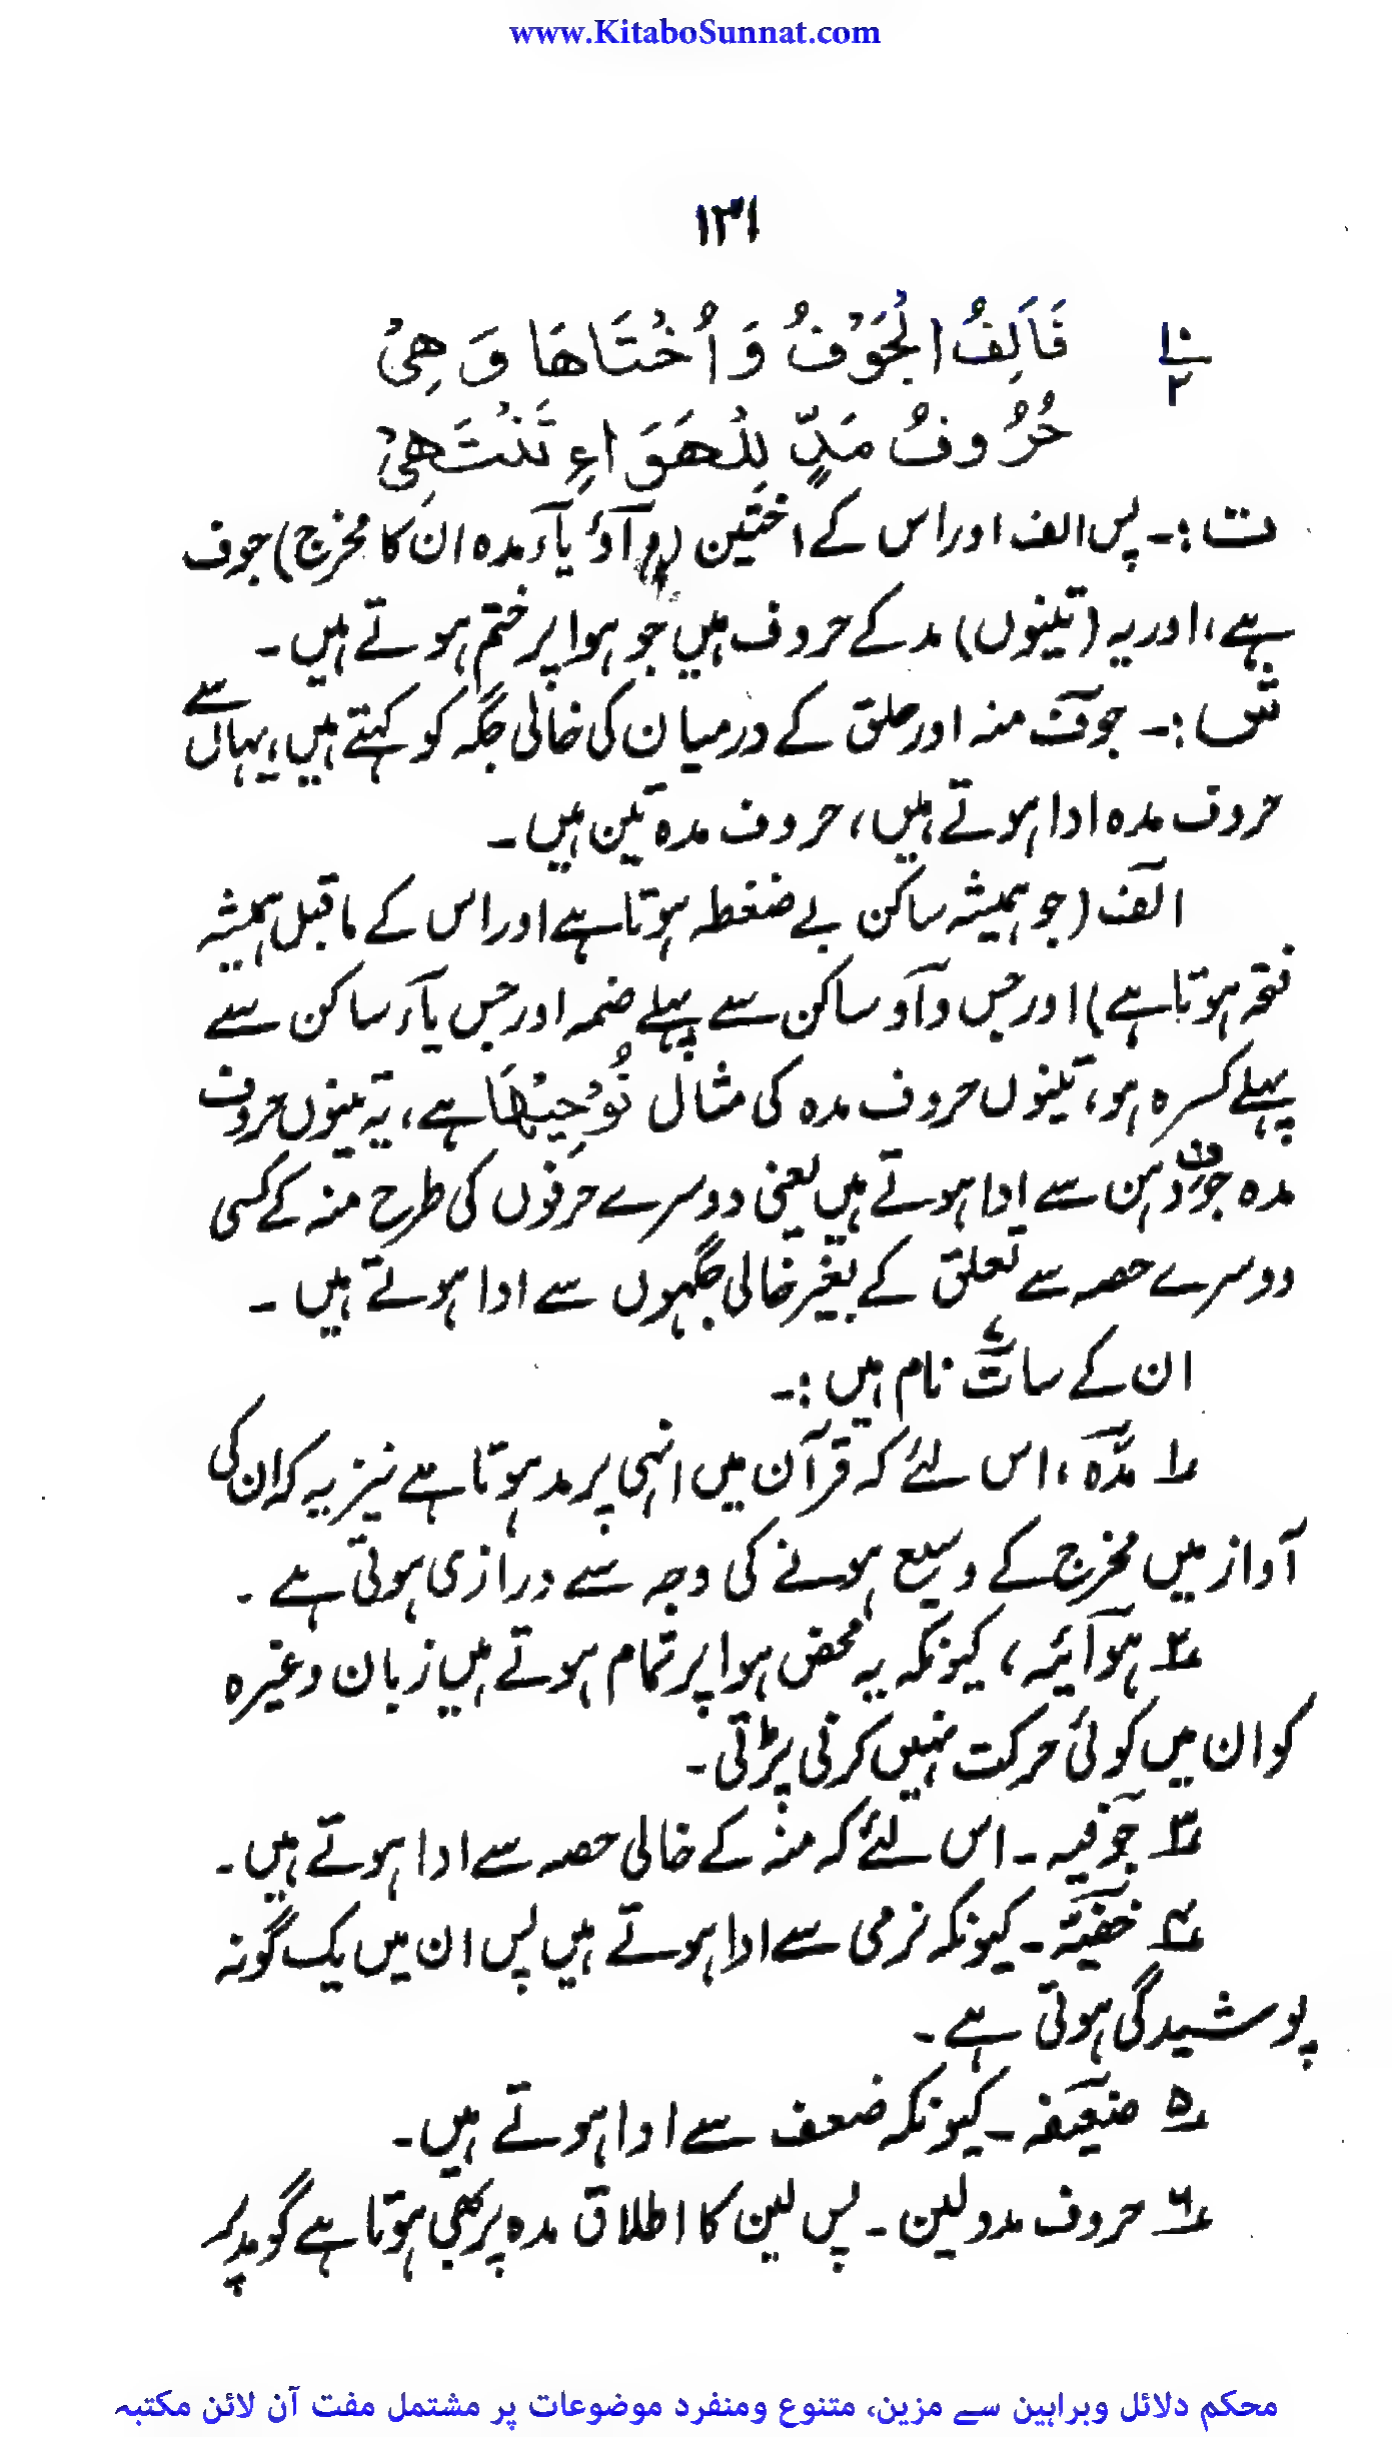 www.KitaboSunnat.com
۱۳۱
۱۰/۲
فَاَلِفُ الْجَوْفُ وَاُخْتَاهَا وَهِیْ
حُرُوفُ مَدٍّ لِلْهَوَاءِ تَنْتَهِیْ
ت :۔ پس الف اور اس کے اختین (واؤ یاء مدہ ان کا مخرج) جوف
ہے، اور یہ (تینوں) مد کے حروف ہیں جو ہوا پر ختم ہوتے ہیں۔
ش :۔ جوف منہ اور حلق کے درمیان کی خالی جگہ کو کہتے ہیں، یہاں سے
حروف مدہ ادا ہوتے ہیں، حروف مدہ تین ہیں۔
الف (جو ہمیشہ ساکن بے ضغطہ ہوتا ہے اور اس کے ماقبل ہمیشہ
فتحہ ہوتا ہے) اور جس واو ساکن سے پہلے ضمہ اور جس یاء ساکن سے
پہلے کسرہ ہو، تینوں حروف مدہ کی مثال نُوْحِیْهَا ہے، یہ تینوں حروف
مدہ جوف دہن سے ادا ہوتے ہیں یعنی دوسرے حرفوں کی طرح منہ کے کسی
دوسرے حصہ سے تعلق کے بغیر خالی جگہوں سے ادا ہوتے ہیں۔
ان کے سات نام ہیں :۔
۱؎ مدّہ، اس لئے کہ قرآن میں انہی پر مد ہوتا ہے نیز یہ کہ ان کی
آواز میں مخرج کے وسیع ہونے کی وجہ سے درازی ہوتی ہے۔
۲؎ ہوائیہ، کیونکہ یہ محض ہوا پر تمام ہوتے ہیں زبان وغیرہ
کو ان میں کوئی حرکت نہیں کرنی پڑتی۔
۳؎ جوفیہ۔ اس لئے کہ منہ کے خالی حصہ سے ادا ہوتے ہیں۔
۴؎ خفیّہ۔ کیونکہ نرمی سے ادا ہوتے ہیں پس ان میں یک گونہ
پوشیدگی ہوتی ہے۔
۵؎ ضعیفہ۔ کیونکہ ضعف سے ادا ہوتے ہیں۔
۶؎ حروف مدولین۔ پس لین کا اطلاق مدہ پر بھی ہوتا ہے گو مد پر
محکم دلائل وبراہین سے مزین، متنوع ومنفرد موضوعات پر مشتمل مفت آن لائن مکتبہ